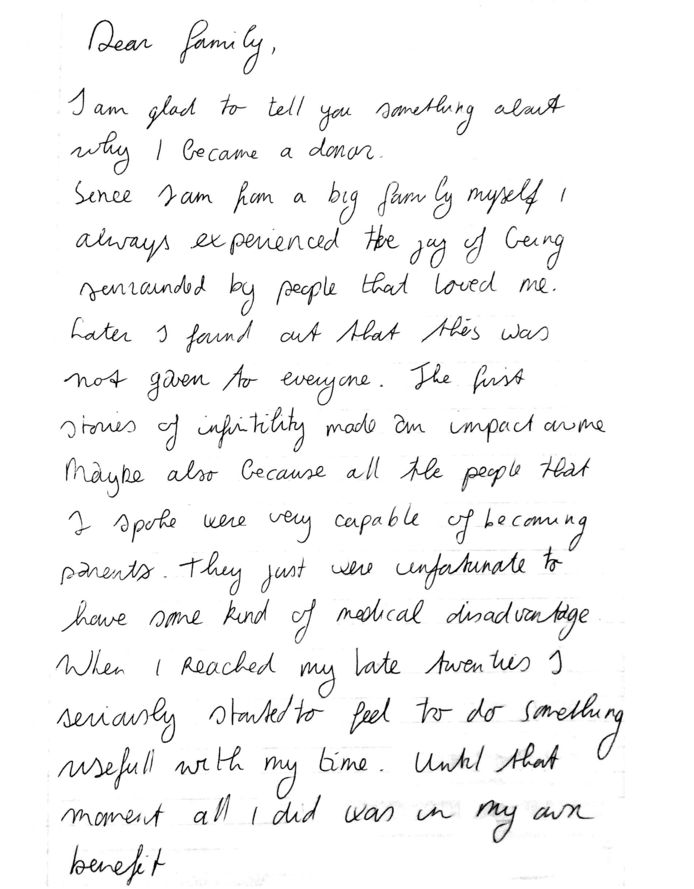 Dear family,
I am glad to tell you something about
why I became a donor.
Since I am from a big family myself I
always experienced the joy of being
surrounded by people that loved me.
Later I found out that this was
not given to everyone. The first
stories of infirtility made an impact on me
Maybe also because all the people that
I spoke were very capable of becoming
parents. They just were unfortunate to
have some kind of medical disadvantage
When I reached my late twenties I
seriously started to feel to do something
usefull with my time. Until that
moment all I did was in my own
benefit